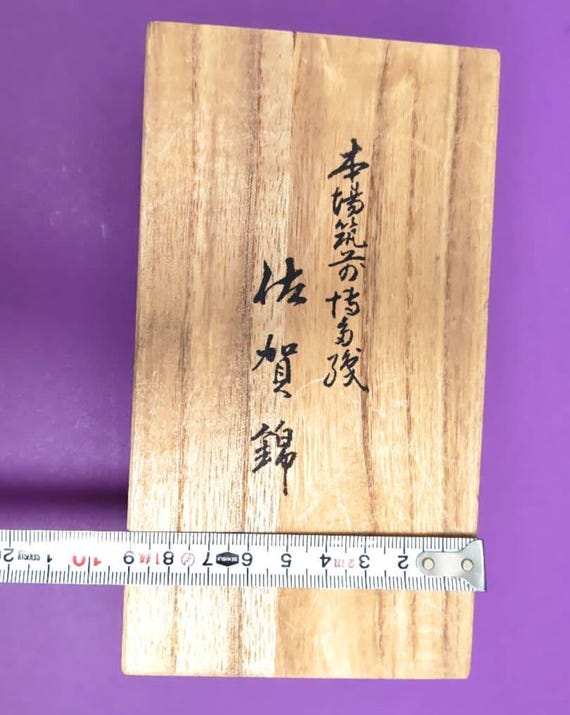 本場筑前博多織
佐賀錦
2 3 4 5 6 7 8 9 10